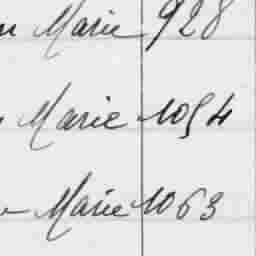 Marie 928
Marie 1054
Marie 1063